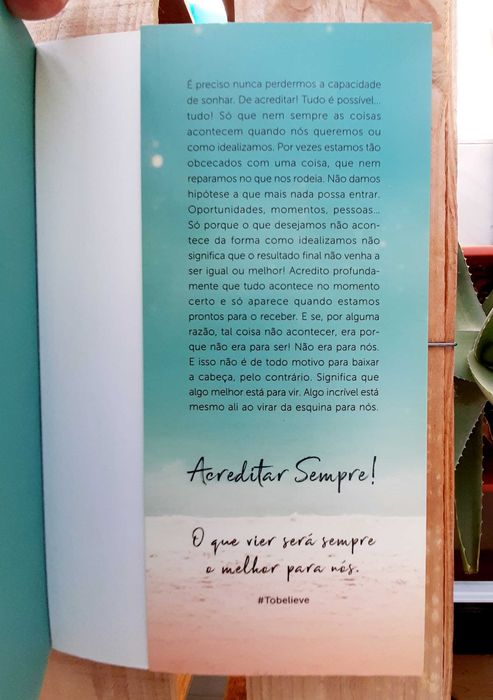 É preciso nunca perdermos a capacidade
de sonhar. De acreditar! Tudo é possível...
tudo! Só que nem sempre as coisas
acontecem quando nós queremos ou
como idealizamos. Por vezes estamos tão
obcecados com uma coisa, que nem
reparamos no que nos rodeia. Não damos
hipótese a que mais nada possa entrar.
Oportunidades, momentos, pessoas...
Só porque o que desejamos não acon-
tece da forma como idealizamos não
significa que o resultado final não venha a
ser igual ou melhor! Acredito profunda-
mente que tudo acontece no momento
certo e só aparece quando estamos
prontos para o receber. E se, por alguma
razão, tal coisa não acontecer, era por-
que não era para ser! Não era para nós.
E isso não é de todo motivo para baixar
a cabeça, pelo contrário. Significa que
algo melhor está para vir. Algo incrível está
mesmo ali ao virar da esquina para nós.
Acreditar Sempre!
O que vier será sempre
o melhor para nós.
#Tobelieve